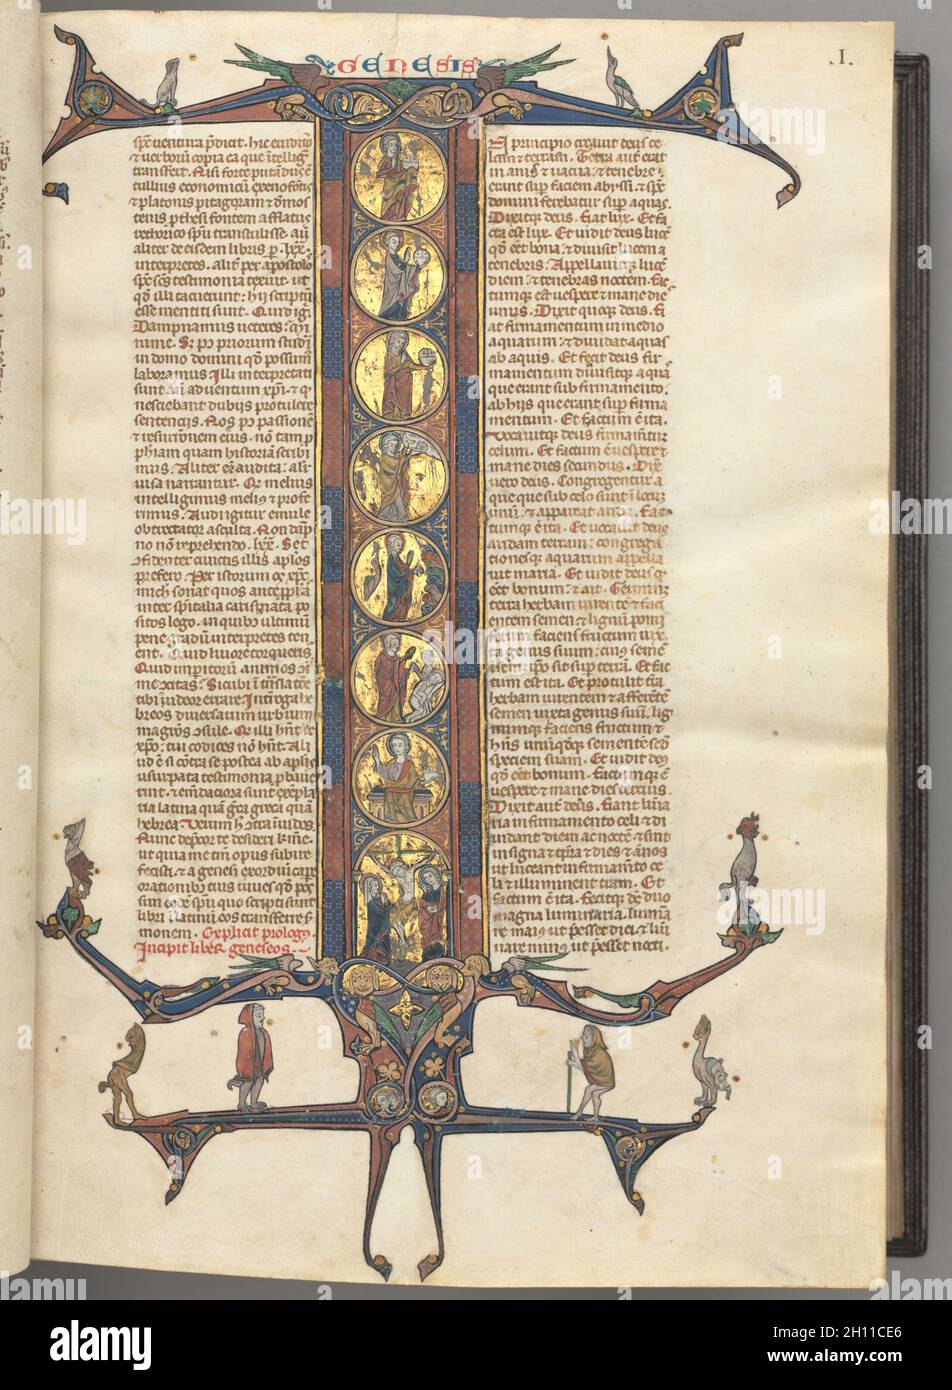 GENESIS
.I.
sp̅c ventura p̃dicit. hic erudit̃o
⁊ verboꝝ copia ea que ĩtelligit
transfert. Nisi forte putãd ẽ
tullius economicũ xenofontis
⁊ platonis pitagoram ⁊ demos
tenis
rethorico sp̅u transtulisse. aut
aliter de eisdem libris p̱ .lxx.
interpretes. alit̃ per apostolos
sp̅c sc̅s testimonia texuit. ut
qd̃ illi tacuerunt: hij scriptũ
esse mentiti sunt. Quid igit̃
Dampnamus veteres: mi
nime. Sꝫ post priorum studia
in domo domini qd̃ possum
laboramus. Illi interpretati
sunt añ aduentum xp̅i. ⁊ qd̃
nesciebant dubijs protulere
sentencijs. Nos post passionẽ
⁊ resurrectionem eius. nõ tam p
phetiam quam historiam scribi
mus. Aliter enim audita: alit̃
uisa narrantur. Qd̃ melius
intelligimus melius ⁊ profe
rimus. Audi igitur emule
obtrectator asculta. Non dãp
no nõ reprehendo .lxx. Set
cõfidenter cunctis illis apłos
prefero. Per istorum os xp̅c
mich sonat quos ante ꝓphãs
inter sp̃italia carismata po
sitos lego. in quibus ultimũ
pene gradũ interpretes ten
ent. Quid liuore torqueris.
Quid imperitorum animos ↄ̃t
me ↄcitas. Sicubi ĩ trãslatõe
tibi uideor errare. Interroga he
breos diuersarum urbium
magistros ↄsule. Qd̃ illi hñt de
xp̅o: tui codices nõ hñt. Ali
ud ẽ si ↄtra se postea ab apłis
usurpata testimonia pbauer
unt. ⁊ emendaciora sunt exẽpla
ria latina quã greca. greca quã
hebrea. Verum hec ↄtra inuidos.
Nunc deprecor te desideri k̃me.
ut quia me tm̃ opus subire
fecisti. ⁊ a genesi exordiũ cape
orationibus tuis iuues quo poss
sim eodem sp̅u quo scripti sunt
libri ĩ latinũ eos transferre s̃
monem. Explicit prologus.
Incipit liber geneseos.
A principio creauit deus ce
lum ⁊ terram. Terra aut̃ erat
inanis ⁊ uacua: ⁊ tenebre
erant sup̱ faciem abyssi. ⁊ sp̅c
domini ferebatur sup̱ aquas.
Dixitque deus. Fiat lux. Et fa
cta est lux. Et uidit deus lucẽ
qd̃ eẽt bona: ⁊ diuisit lucem a
tenebris. Appellauitque lucẽ
diem: ⁊ tenebras noctem. Fac
tumque est uespere ⁊ mane die
unus. Dixit quoque deus. Fi
at firmamentum in medio
aquarum: ⁊ diuidat aquas
ab aquis. Et fecit deus fir
mamentum diuisitque aqua
que erant sub firmamento.
ab hijs que erant sup̱ firma
mentum. Et factum ẽ ita.
Vocauitque deus firmam̃tum
celum. Et factum ẽ uespere ⁊
mane dies secundus. Dixit
uero deus. Congregentur a
que que sub celo sunt ĩ locũ
unũ: ⁊ appareat arida. Fac
tumque ẽ ita. Et uocauit deus
aridam terram: congrega
tionesque aquarum appella
uit maria. Et uidit deus qd̃
eẽt bonum: ⁊ ait. Germinet
terra herbam uirentẽ ⁊ faci
entem semen: ⁊ lignum pomi
ferum faciens fructum iux
ta genus suum: cuius seme
in semetip̃o sit sup̱ terrã. Et fac
tum est ita. Et protulit terra
herbam uirentem ⁊ afferentẽ
semen iuxta genus suũ. lig
numque faciens fructum ⁊
hñs unũqdque sementẽ scd̃m
speciem suam. Et uidit deus
qd̃ eẽt bonum. Factumque ẽ
uespere ⁊ mane dies tercius.
Dixit aut̃ deus. Fiant lumĩa
ria in firmamento celi ⁊ di
uidant diem ac noctem: ⁊ sint
in signa ⁊ tp̃ra ⁊ dies ⁊ ãnos
ut luceant in firmam̃to ce
li ⁊ illuminent terram. Et
factum ẽ ita. Fecitque deus duo
magna luminaria. lumina
re maius ut p̃esset diei: ⁊ lu
minare minus ut p̃esset nocti.
alamy
Image ID: 2H11CE6
www.alamy.com